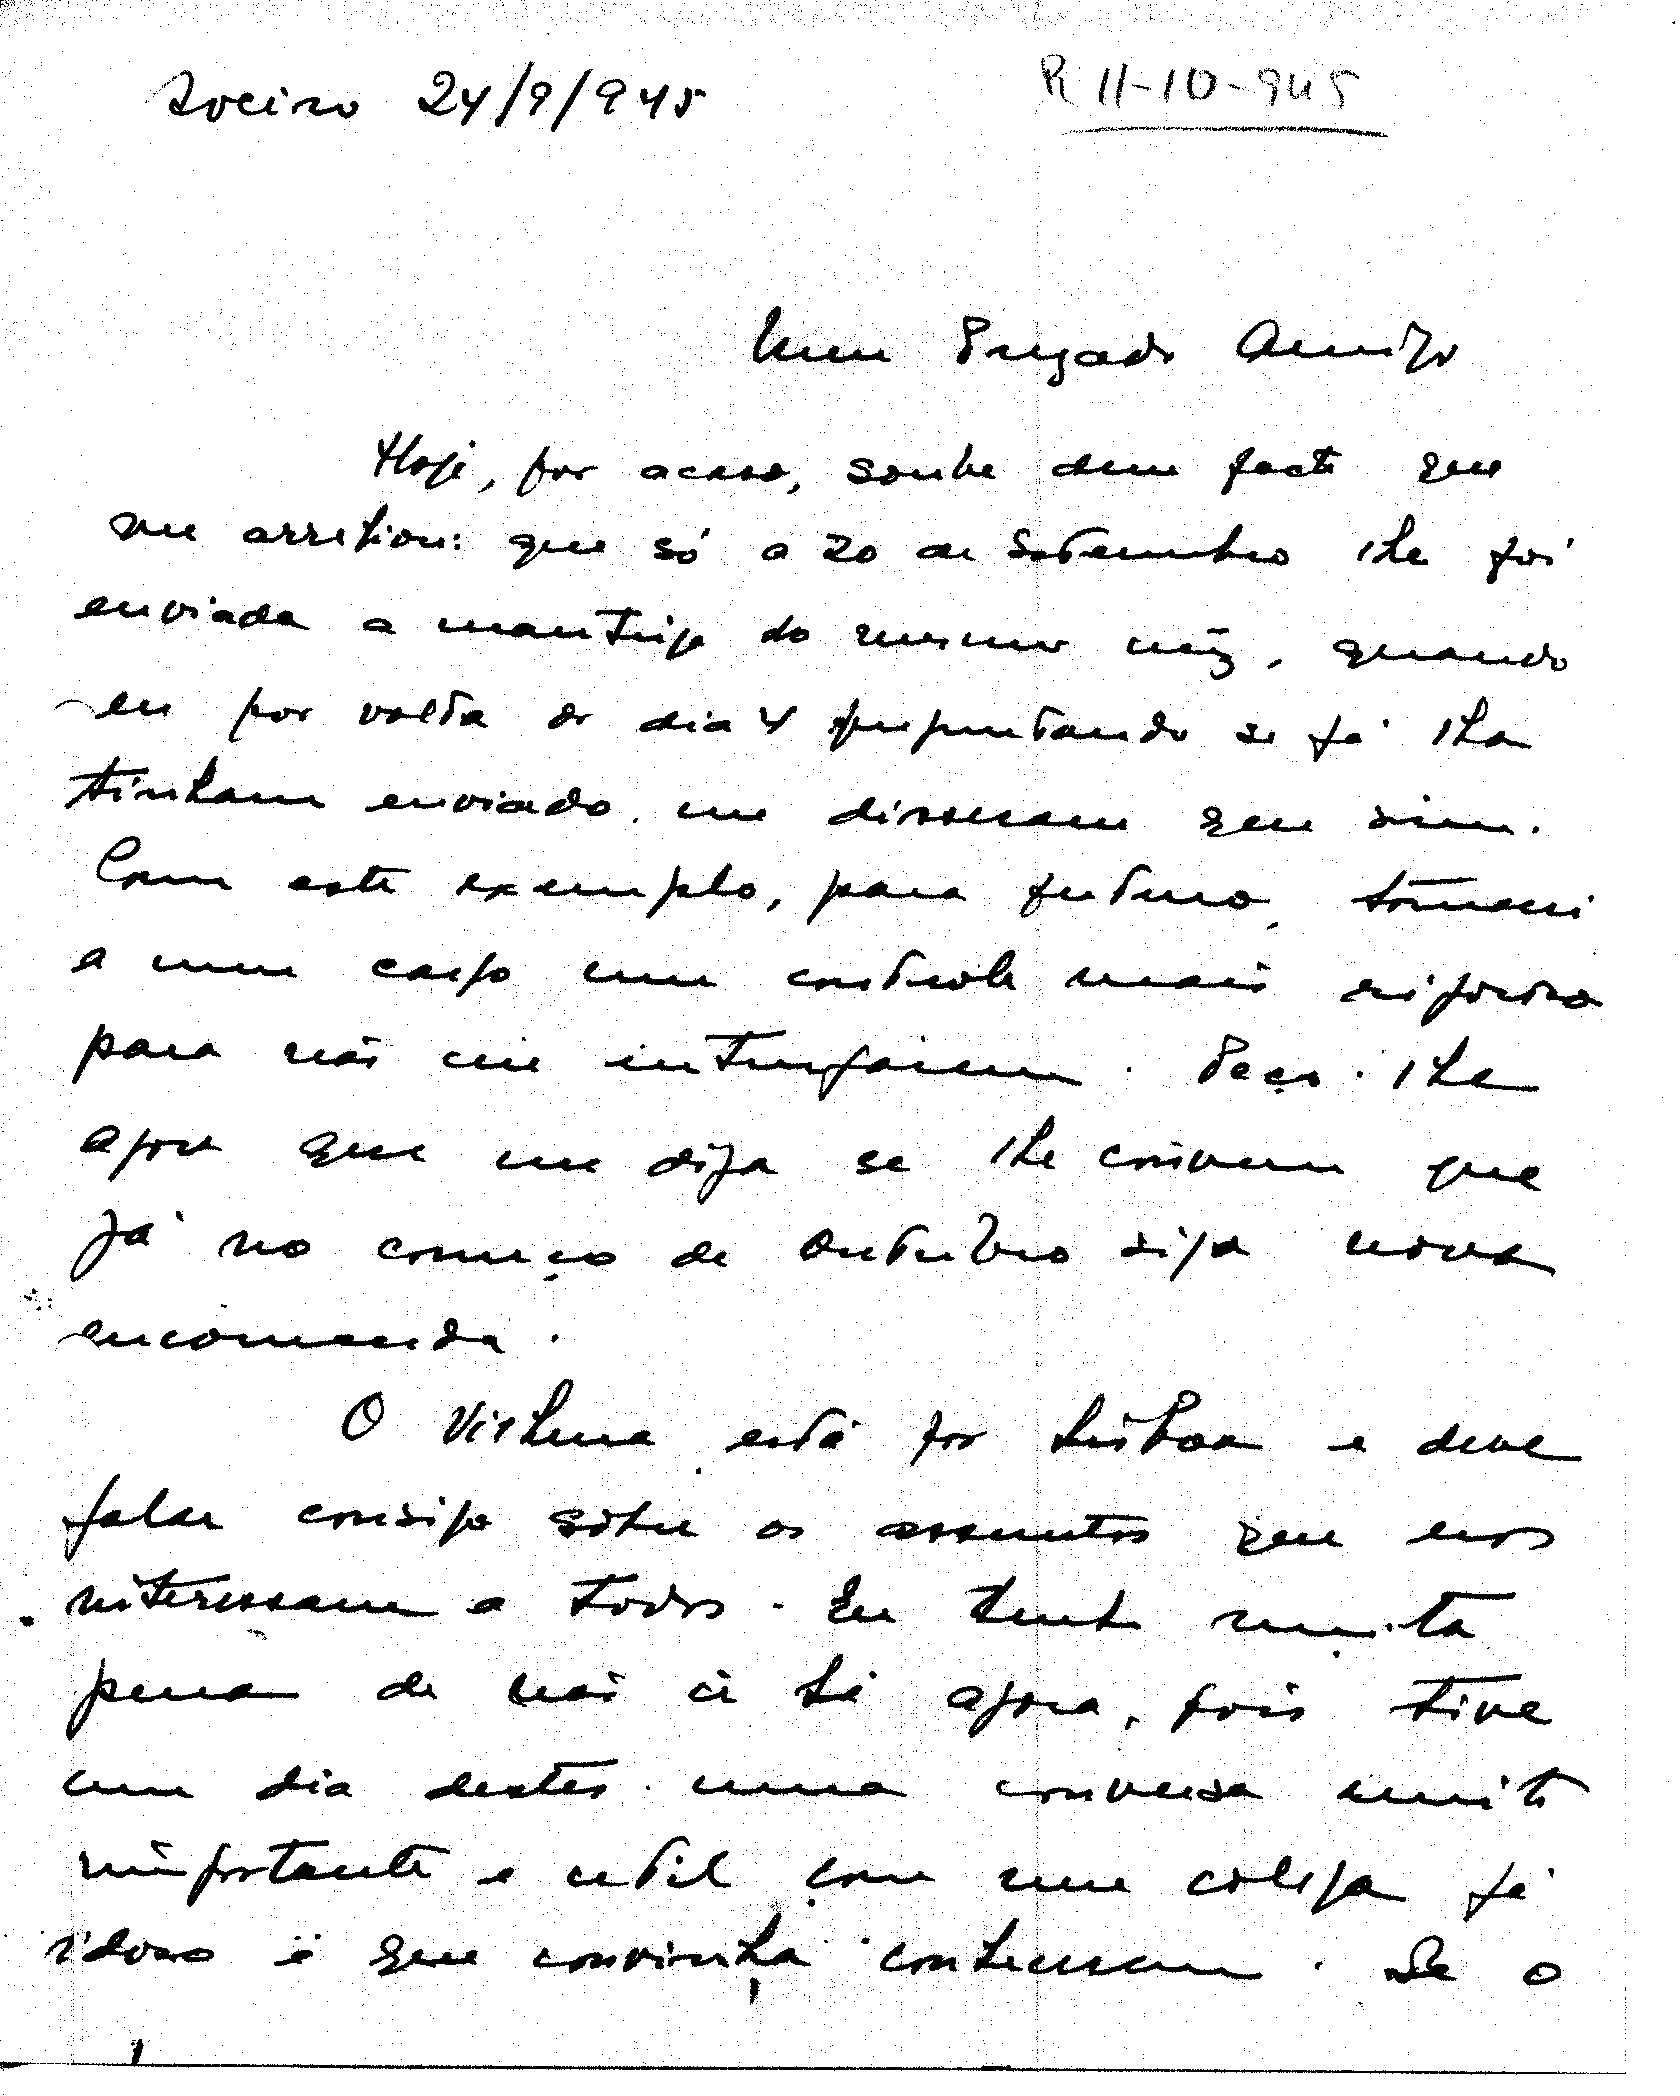 24/9/945 R 11-10-945
Meu Presado Amigo
Hoje, por acaso, soube dum facto que
me arreliou: que só a 20 de Setembro lhe foi
enviada a manteiga do mesmo mês, quando
eu por volta do dia 4 preguntando se já lha
tinham enviado, me disseram que sim.
Com este exemplo, para futuro, tomarei
a meu cargo um controle mais rigoroso
para não me intrujarem. Peço-lhe
agora que me diga se lhe convem que
já no começo de Outubro siga nova
encomenda.
O Vilhena está por Lisboa e deve
falar consigo sôbre os assuntos que nos
interessam a todos. Eu tenho muita
pena de não ir lá agora, pois tive
um dia destes uma conversa muito
importante e util com um colega já
idoso e que convinha conhecessem. Se o